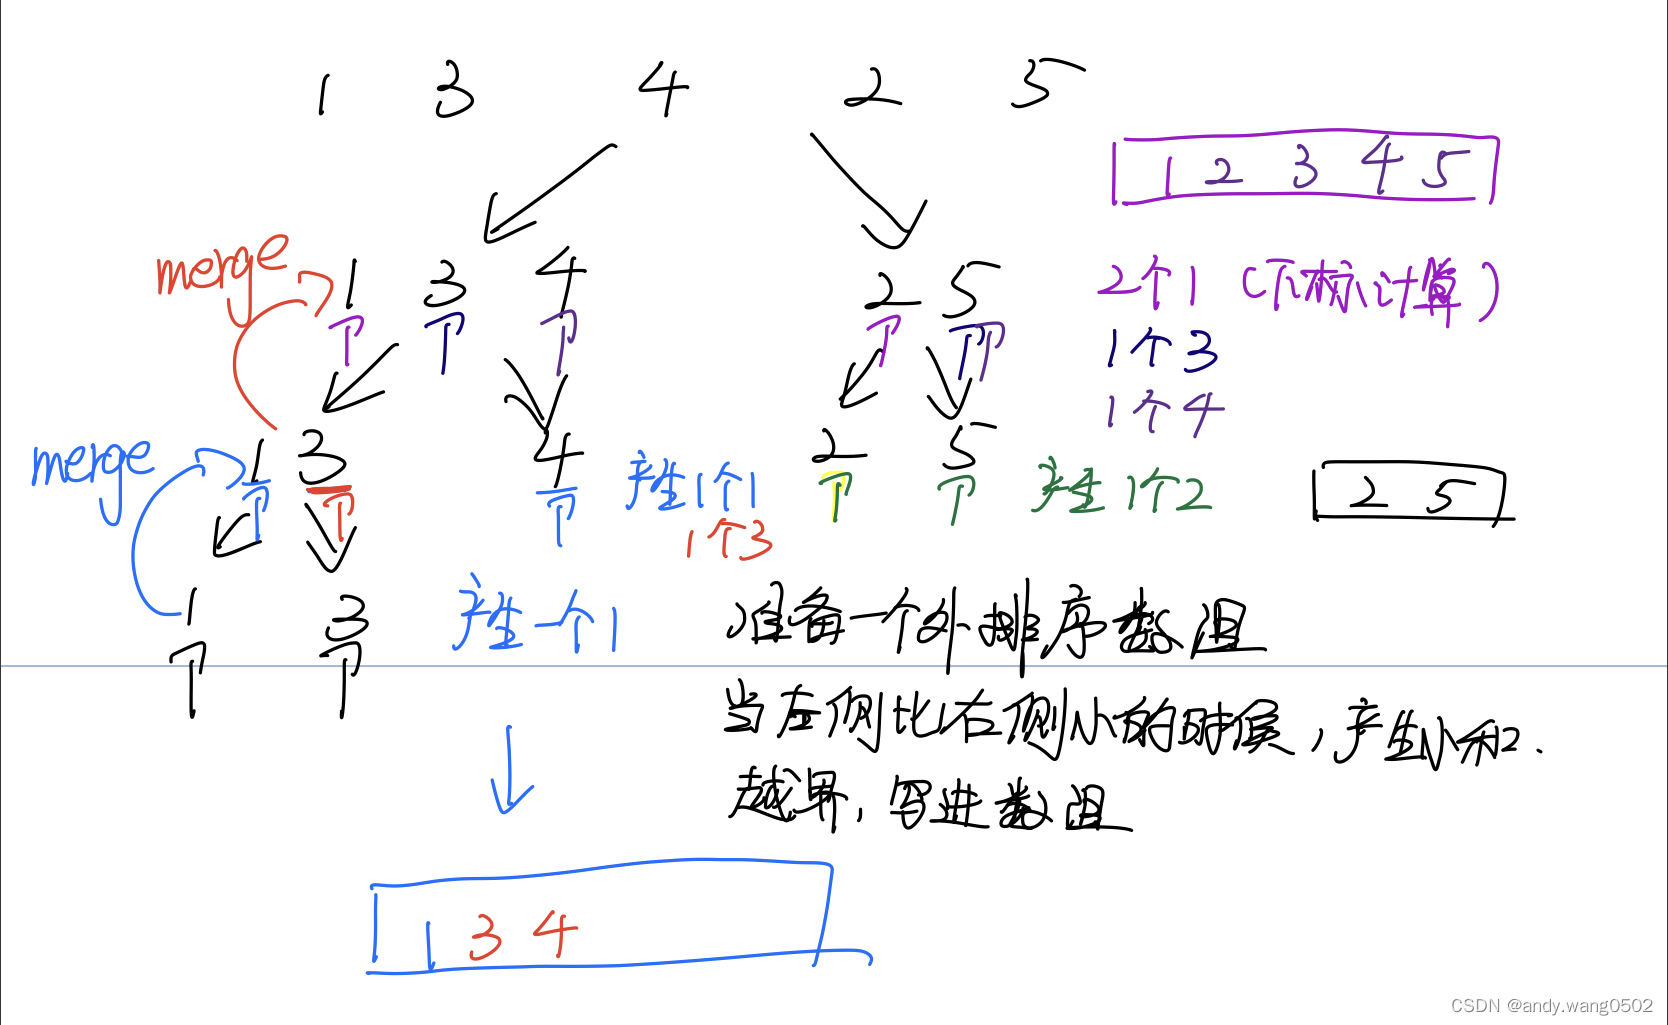 1 3 4 2 5
1 2 3 4 5
merge
1 3 4 2 5
2个1（下标计算）
1个3
1个4
merge
1 3 4 2 5
产生1个1
1个3
产生1个2
2 5
1 3
产生一个1
准备一个外排序数组
当左侧比右侧小的时候，产生小和.
越界，写进数组
1 3 4
CSDN @andy.wang0502